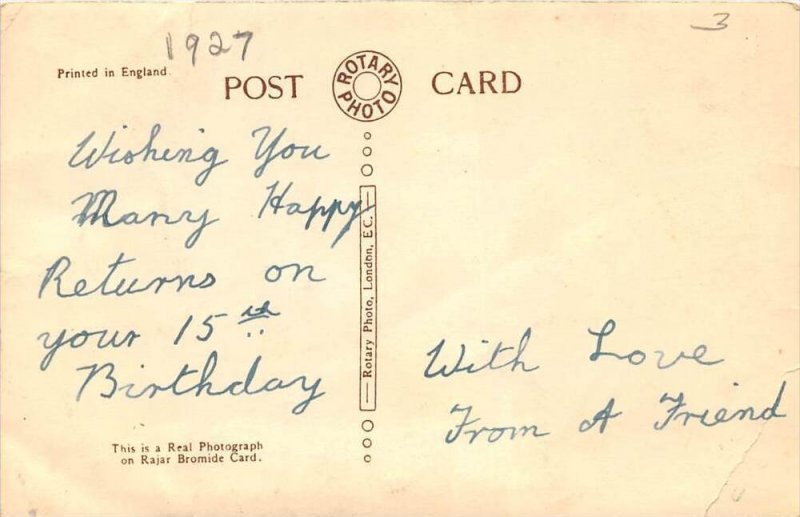 1927
3
Printed in England.
POST
ROTARY PHOTO
CARD
Wishing You
Many Happy
Returns on
your 15th
Birthday
This is a Real Photograph
on Rajar Bromide Card.
Rotary Photo, London, E.C.
With Love
From A Friend